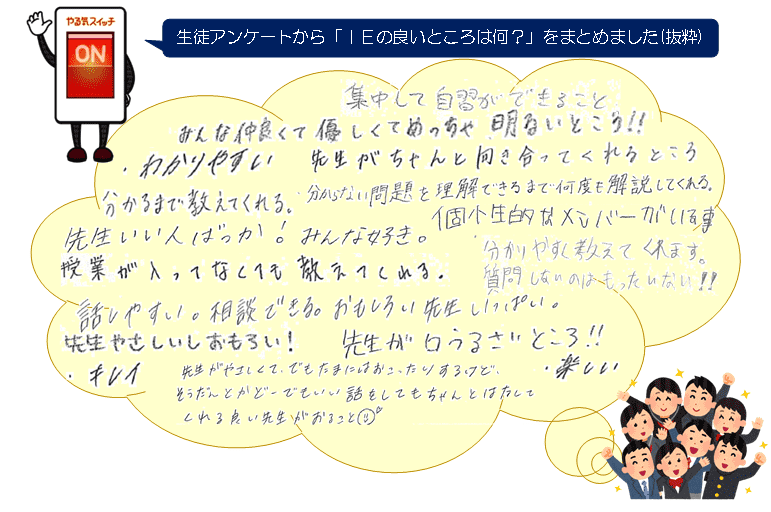 やる気スイッチ
ON
生徒アンケートから「ＩＥの良いところは何？」をまとめました(抜粋)
集中して自習ができること!
みんな仲良くて優しくてめっちゃ明るいところ!!
・わかりやすい
先生がちゃんと向き合ってくれるところ
分かるまで教えてくれる。
・分からない問題を理解できるまで何度も解説してくれる。
個性的なメンバーがいる事
先生いい人ばっか！みんな好き。
分かりやすく教えてくれます。
質問しないのはもったいない!!
授業が入ってなくても教えてくれる.
話しやすい。相談できる。おもしろい先生いっぱい。
先生やさしいしおもろい！
先生が口うるさいところ!!
・キレイ
・楽しい
先生がやさしくて、でもたまにはおこったりするけど、
そうだんとかどーでもいい話をしてもちゃんとはなして
くれる良い先生がおること